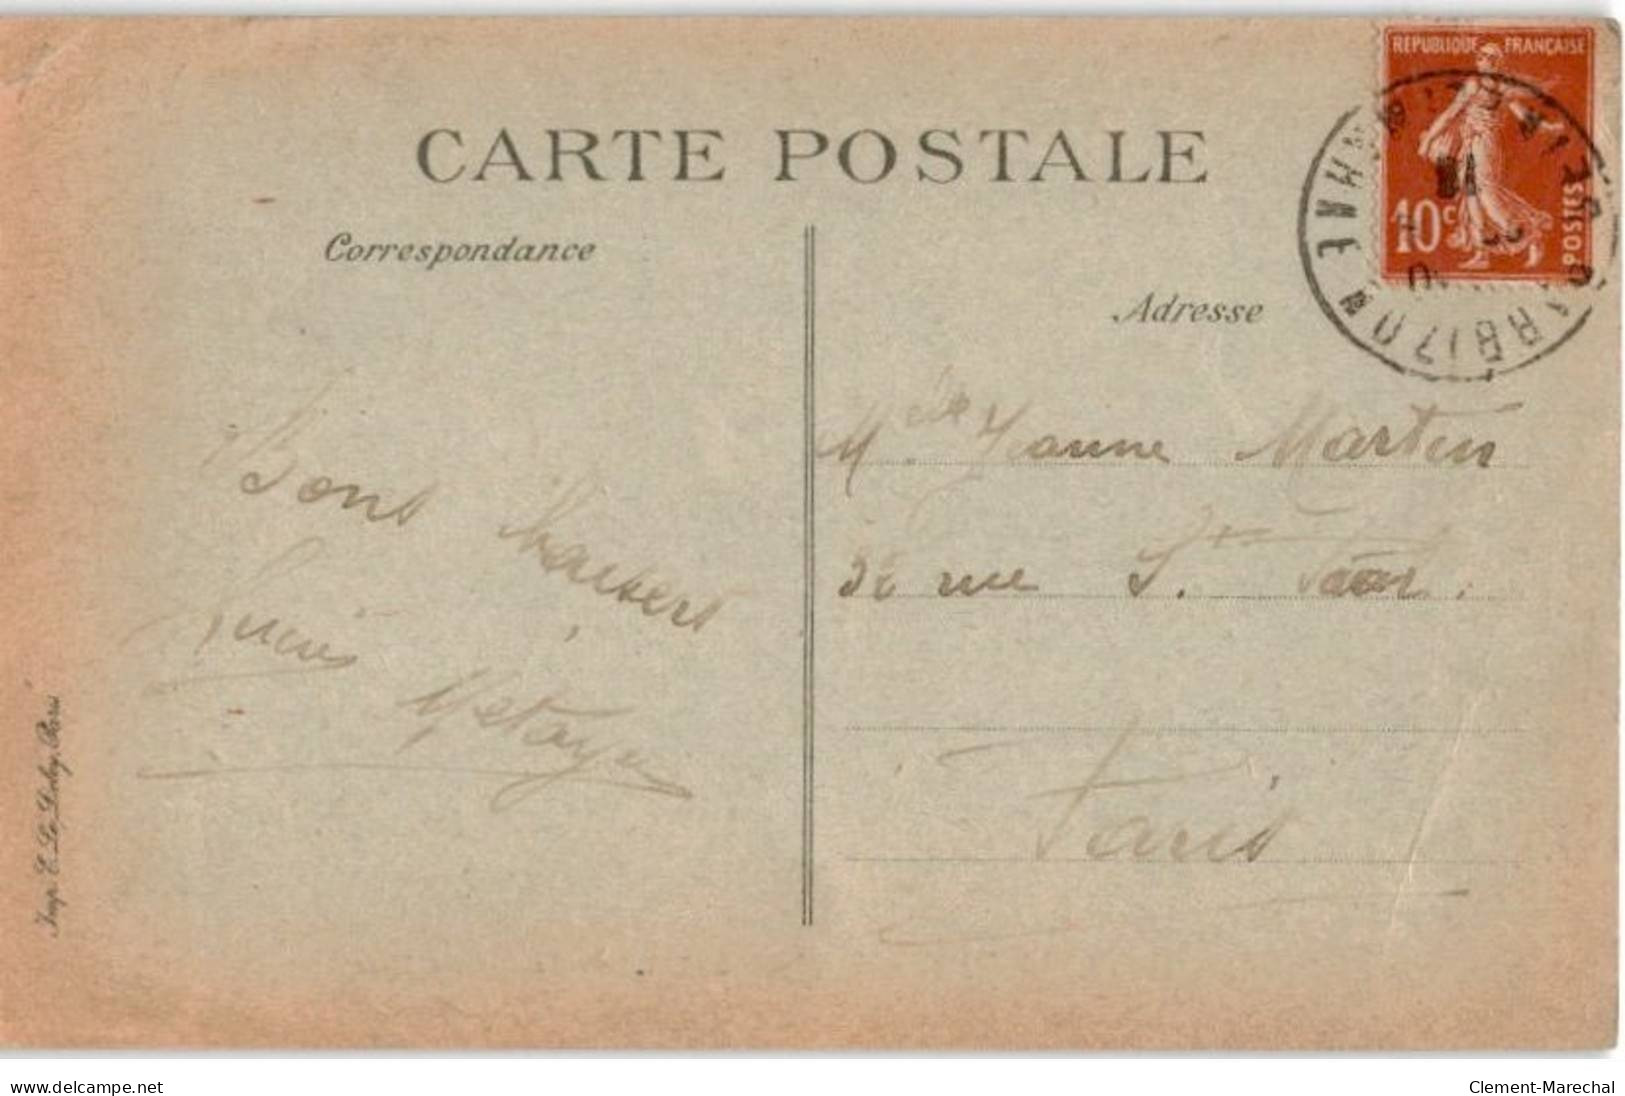 RÉPUBLIQUE FRANÇAISE
10c
POSTES
CARTE POSTALE
Correspondance
Adresse
Mlle Jeanne Martin
rue St.
Paris
Bons baisers
Imp. E. Le Deley, Paris
www.delcampe.net
Clement-Marechal